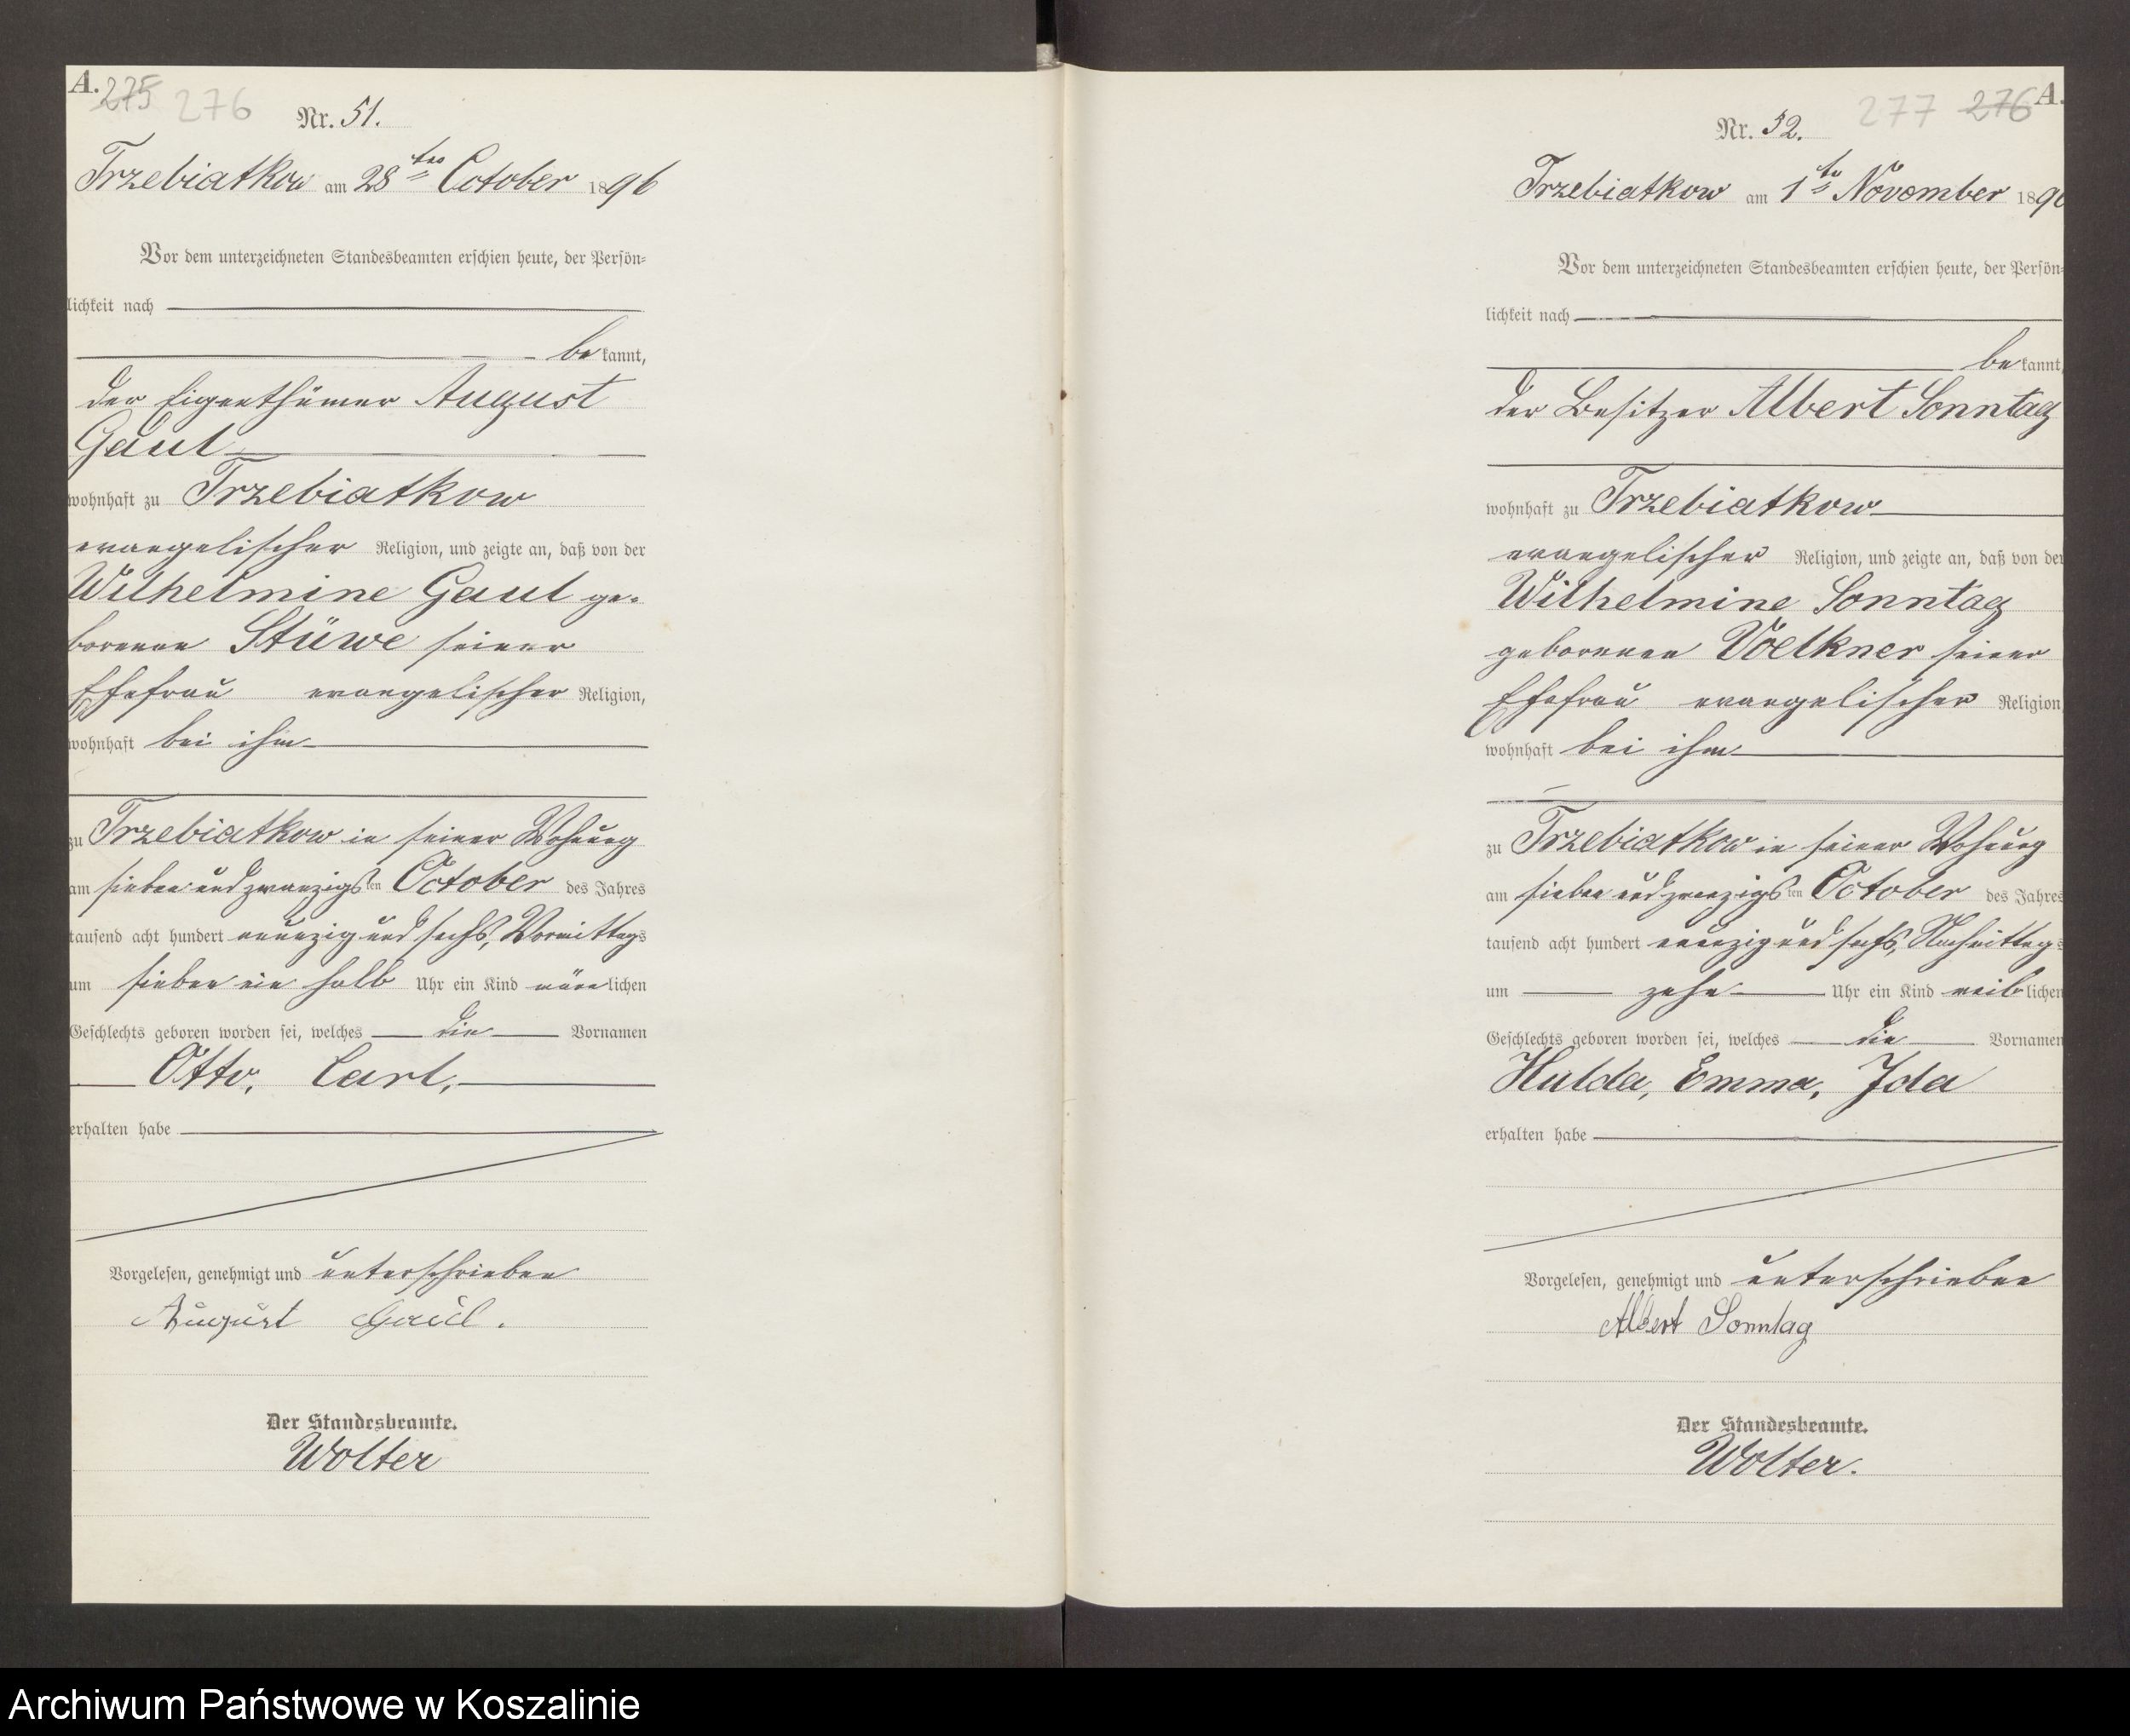 A.
275 276
Nr. 51.
Trzebiatkow am 28ten October 1896
Vor dem unterzeichneten Standesbeamten erschien heute, der Persön-
lichkeit nach
bekannt,
der Eigenthümer August
Gaul
wohnhaft zu Trzebiatkow
evangelischer Religion, und zeigte an, daß von der
Wilhelmine Gaul ge-
borenen Stüwe seiner
Ehefrau evangelischer Religion,
wohnhaft bei ihm
zu Trzebiatkow in seiner Wohnung
am sieben und zwanzigsten October des Jahres
tausend acht hundert neunzig und sechs, Vormittags
um sieben ein halb Uhr ein Kind männlichen
Geschlechts geboren worden sei, welches die Vornamen
Otto, Carl,
erhalten habe
Vorgelesen, genehmigt und unterschrieben
August Gaul.
Der Standesbeamte.
Wolter
277 276 A.
Nr. 52.
Trzebiatkow am 1ten November 1896
Vor dem unterzeichneten Standesbeamten erschien heute, der Persön-
lichkeit nach
bekannt,
der Besitzer Albert Sonntag
wohnhaft zu Trzebiatkow
evangelischer Religion, und zeigte an, daß von der
Wilhelmine Sonntag
geborenen Voelkner seiner
Ehefrau evangelischer Religion
wohnhaft bei ihm
zu Trzebiatkow in seiner Wohnung
am sieben und zwanzigsten October des Jahres
tausend acht hundert neunzig und sechs, Nachmittags
um zehn Uhr ein Kind weiblichen
Geschlechts geboren worden sei, welches die Vornamen
Hulda, Emma, Ida
erhalten habe
Vorgelesen, genehmigt und unterschrieben
Albert Sonntag
Der Standesbeamte.
Wolter.
Archiwum Państwowe w Koszalinie